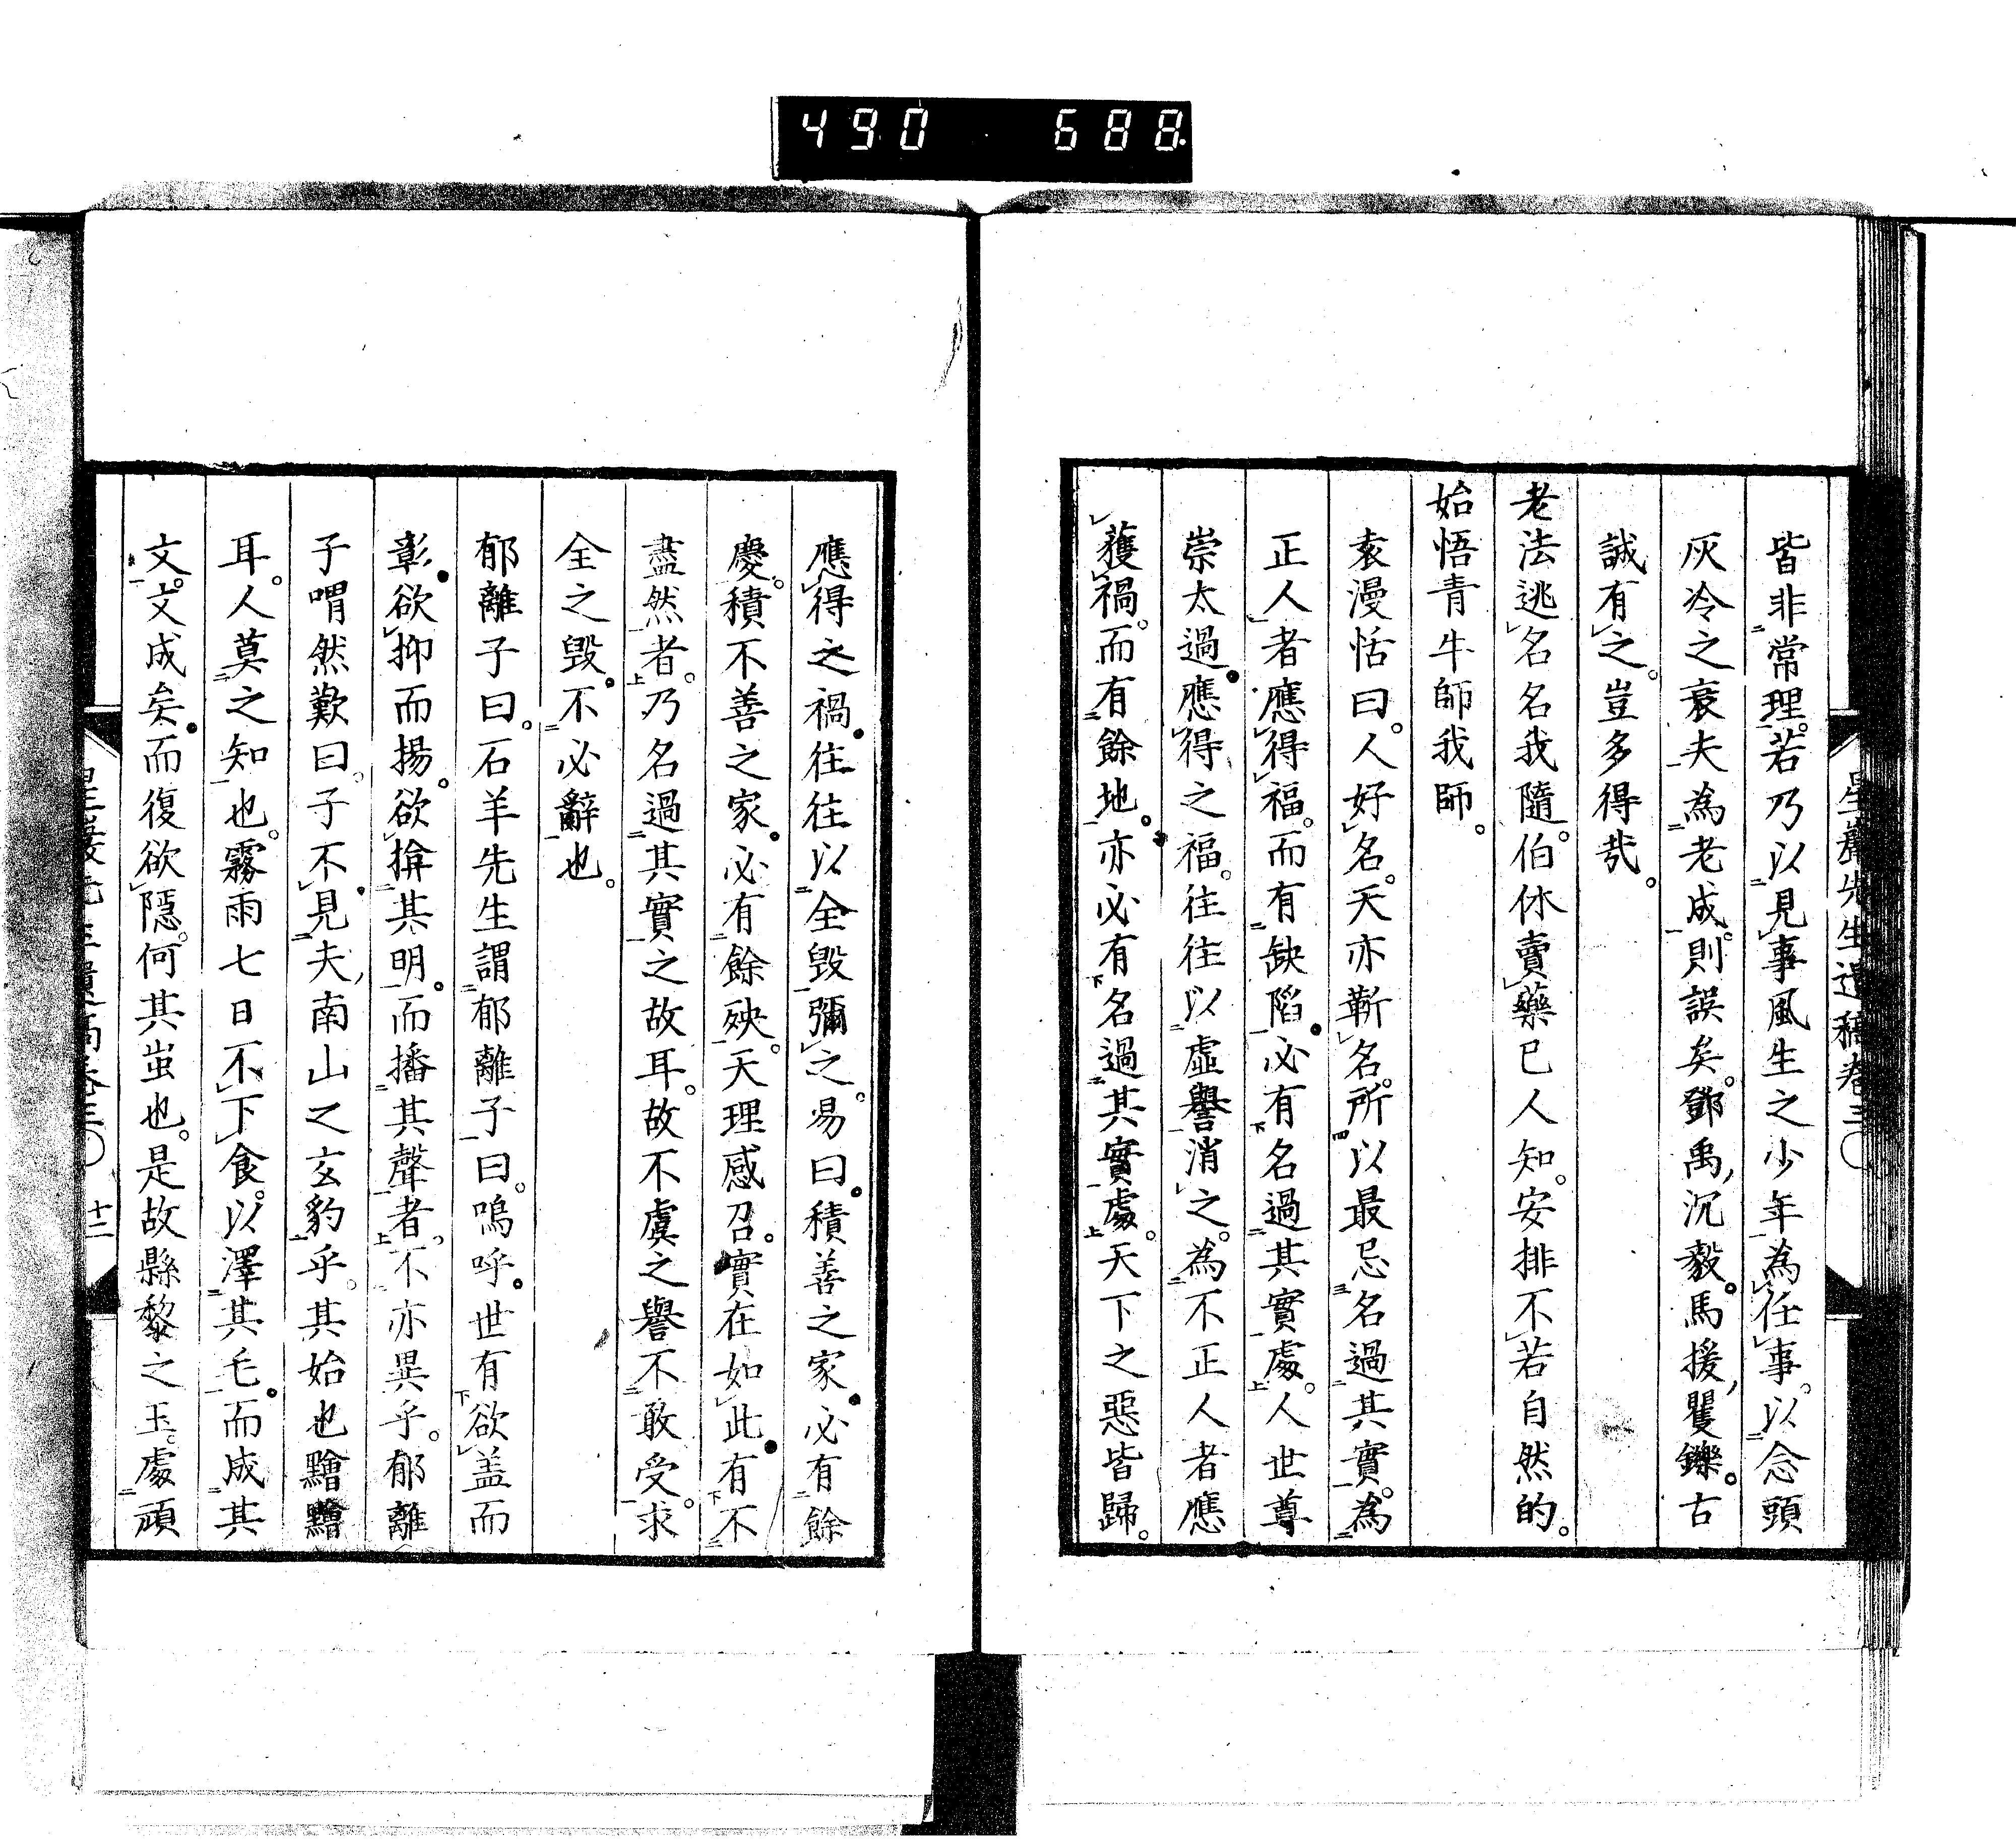 490 688
星巖先生遺稿卷三
皆非常理。若乃以見事風生之少年為任事。以念頭
灰冷之衰夫為老成。則誤矣。鄧禹沉毅。馬援矍鑠。古
誠有之。豈多得哉。
老法逃名名我隨。伯休賣藥已人知。安排不若自然的。
始悟青牛師我師。
袁漫恬曰。人好名。天亦靳名。所以最忌名過其實。為
正人者應得福。而有缺陷。必有名過其實處。人世尊
崇太過。應得之福。往往以虛譽消之。為不正人者應
獲禍。而有餘地。亦必有名過其實處。天下之惡皆歸。
應得之禍。往往以全毀彌之。易曰。積善之家。必有餘
慶。積不善之家。必有餘殃。天理感召。實在如此。有不
盡然者。乃名過其實之故耳。故不虞之譽不敢受。求
全之毀。不必辭也。
郁離子曰。石羊先生謂郁離子曰。嗚呼。世有欲盖而
彰。欲抑而揚。欲揜其明。而播其聲者。不亦異乎。郁離
子喟然歎曰。子不見夫南山之玄豹乎。其始也黵黵
耳。人莫之知也。霧雨七日不下食。以澤其毛。而成其
文。文成矣。而復欲隱。何其蚩也。是故縣黎之玉。處頑
十二